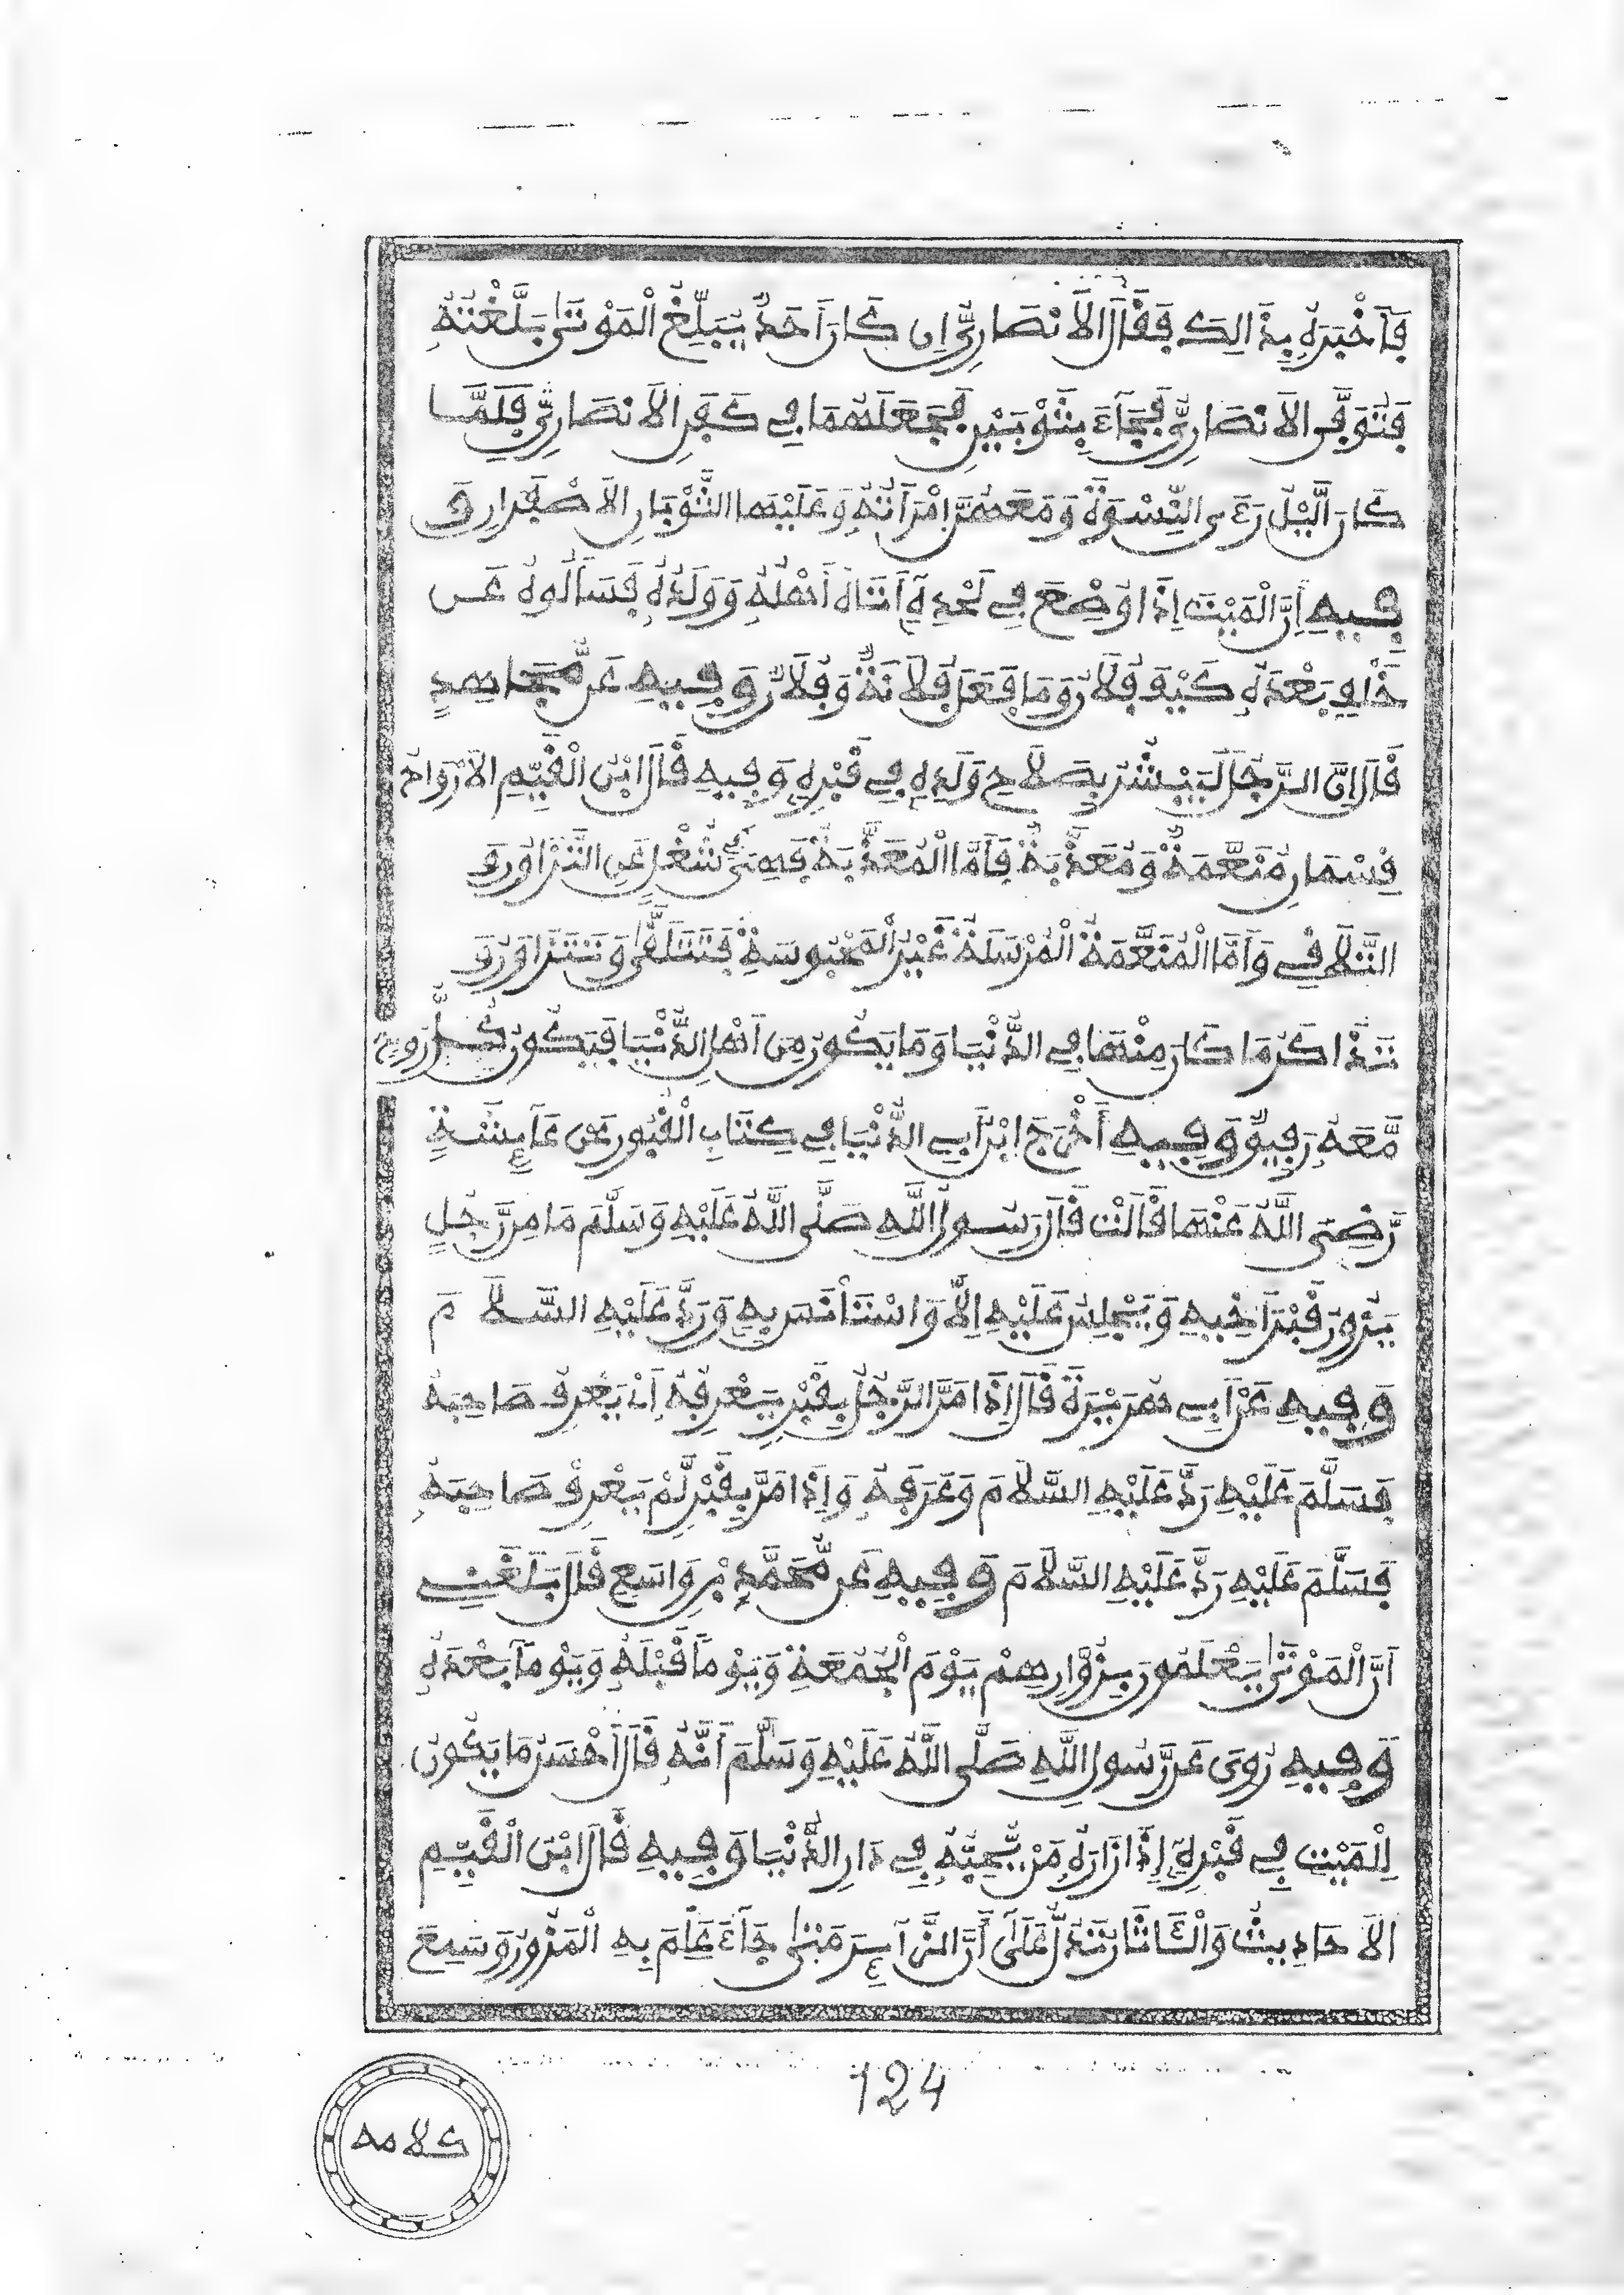 فَأَخْبَرَهُ بِذَالِكَ فَقَالَ الَانْصَارِيُّ إِن كَانَ أَحَدٌ يُبَلِّغُ الْمَوْتَىٰ بَلَّغْتُهُ
فَتُوَفِّيَ الَانْصَارِيُّ فَجَآءَ بِثَوْبَيْنِ فَجَعَلَهُمَا فِي كَفَنِ الَانْصَارِيِّ فَلَمَّا
كَانَ الَّيْلُ رَءَى النِّسْوَةَ وَمَعَهُنَّ اِمْرَأَتُهُ وَعَلَيْهَا الثَّوْبَانِ الَاصْفَرَانِ وَ
فِيهِ اِنَّ الْمَيِّتَ إِذَا وُضِعَ فِي لَحْدِهِ أَتَاهُ أَهْلُهُ وَوَلَدُهُ فَسَأَلُوهُ عَن
خَلْفِ بَعْدَهُ كَيْفَ فُلَانٌ وَمَا فَعَلَ فُلَانَةٌ وَفُلَانٌ وَفِيهِ عَن مُّجَاهِدٍ
قَالَ إِنَّ الرَّجُلَ لَيُبَشَّرُ بِصَلَاحِ وَلَدِهِ فِي قَبْرِهِ وَفِيهِ قَالَ ابْنُ الْقَيِّمِ الَارْوَاحُ
قِسْمَانِ مُنَعَّمَةٌ وَمُعَذَّبَةٌ فَأَمَّا الْمُعَذَّبَةُ فَهِيَ فِي شُغْلٍ عَنِ التَّزَاوُرِ وَ
التَّلَاقِي وَأَمَّا الْمُنَعَّمَةُ الْمُرْسَلَةُ غَيْرُ الْمَحْبُوسَةِ فَتَتَلَقَّىٰ وَتَتَزَاوَرُ وَ
تَتَذَاكَرُ مَا كَانَ مِنْهَا فِي الدُّنْيَا وَمَا يَكُونُ مِنَ اَهْلِ الدُّنْيَا فَيَكُونُ كُلُّ رُوحٍ
مَّعَهُ رَفِيقٌ وَفِيهِ أَخْرَجَ ابْنُ أَبِي الدُّنْيَا فِي كِتَابِ الْقُبُورِ عَنْ عَآئِشَةَ
رَّضِيَ اللَّهُ عَنْهَا قَالَتْ قَالَ رَسُولُ اللَّهِ صَلَّى اللَّهُ عَلَيْهِ وَسَلَّمَ مَا مِن رَّجُلٍ
يَزُورُ قَبْرَ أَخِيهِ وَيَجْلِسُ عَلَيْهِ إِلَّا وَاسْتَأْنَسَ بِهِ وَرَدَّ عَلَيْهِ السَّلَامَ
وَفِيهِ عَنْ أَبِي هُرَيْرَةَ قَالَ إِذَا مَرَّ الرَّجُلُ بِقَبْرٍ يَعْرِفُهُ اَنْ يَعْرِفُ صَاحِبَهُ
فَسَلَّمَ عَلَيْهِ رَدَّ عَلَيْهِ السَّلَامَ وَعَرَفَهُ وَإِذَا مَرَّ بِقَبْرٍ لَّمْ يَعْرِفْ صَاحِبَهُ
فَسَلَّمَ عَلَيْهِ رَدَّ عَلَيْهِ السَّلَامَ وَفِيهِ عَن مُّحَمَّدِ بْنِ وَاسِعٍ قَالَ بَلَغَنِي
اَنَّ الْمَوْتَىٰ يَعْلَمُونَ بِزُوَّارِهِمْ يَوْمَ الْجُمُعَةِ وَيَوْمًا قَبْلَهُ وَيَوْمًا بَعْدَهُ
وَفِيهِ رُوِيَ عَن رَّسُولِ اللَّهِ صَلَّى اللَّهُ عَلَيْهِ وَسَلَّمَ أَنَّهُ قَالَ أَحْسَنُ مَا يَكُونُ
لِلْمَيِّتِ فِي قَبْرِهِ إِذَا زَارَهُ مَن يُّحِبُّهُ فِي دَارِ الدُّنْيَا وَفِيهِ قَالَ ابْنُ الْقَيِّمِ
الَاحَادِيثُ وَالْـَٔاثَارُ تَدُلُّ عَلَىٰ أَنَّ الزَّآئِرَ مَتَىٰ جَآءَ عَلِمَ بِهِ الْمَزُورُ وَسَمِعَ
124
كلامه